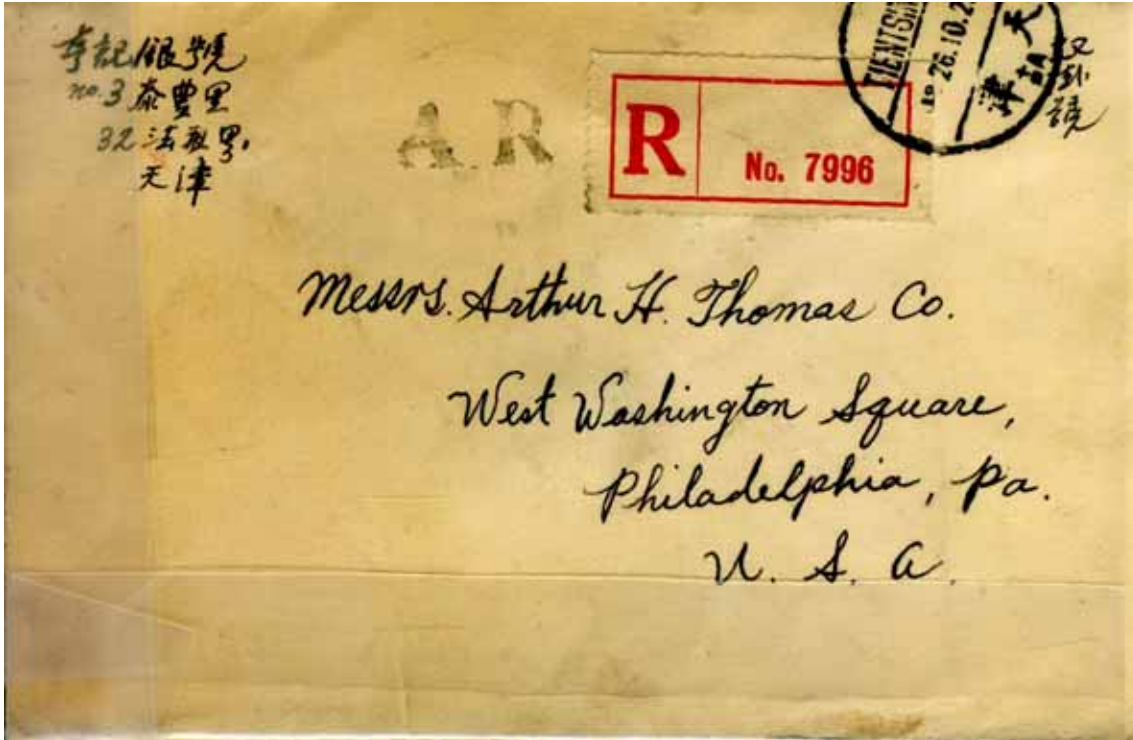 銀號
no. 3 泰豐里
32 法租界
天津
A.R
R No. 7996
TIENTSIN
26.10.2
天津
號
Messrs. Arthur H. Thomas Co.
West Washington Square,
Philadelphia, Pa.
U. S. A.